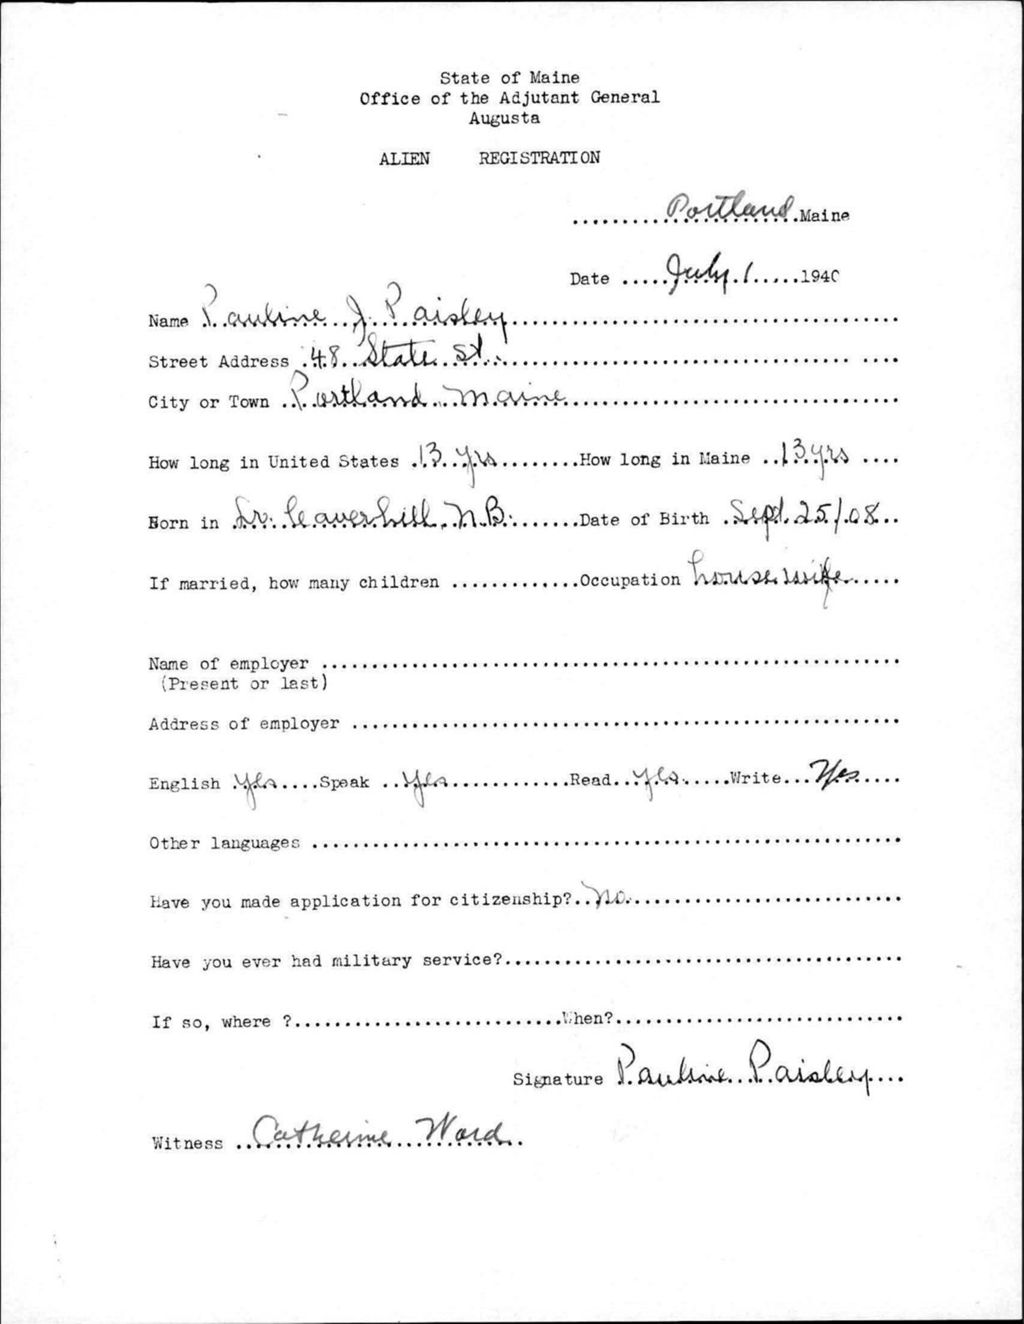 State of Maine
Office of the Adjutant General
Augusta
ALIEN REGISTRATION
.........Portland.Maine
Date .....July 1.....1940
Name Pauline J. Paisley
Street Address 48 State St.
City or Town Portland Maine
How long in United States 13 yrs How long in Maine 13 yrs
Born in N.B. Date of Birth Sept. 25/08
If married, how many children .............Occupation housewife
Name of employer
(Present or last)
Address of employer
English yes Speak yes Read yes Write Yes
Other languages
Have you made application for citizenship? no
Have you ever had military service?
If so, where ? When?
Signature Pauline Paisley
Witness Catherine Ward